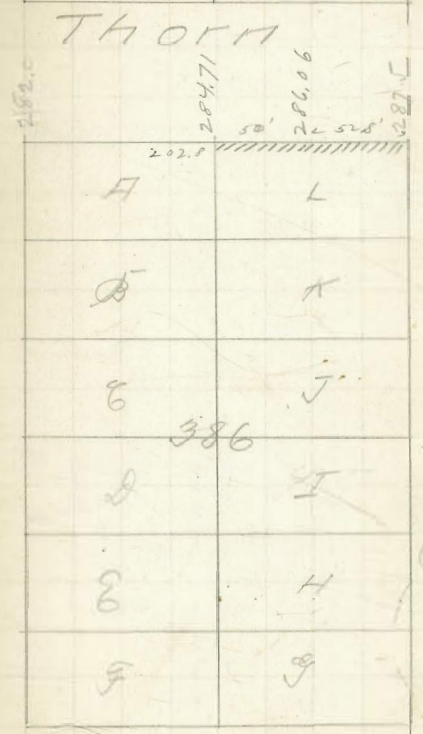 Thorn
282.0 284.71 50' 286.06 2L 52.5' 287.5
202.8
A L
B K
C J
386
D I
E H
F G